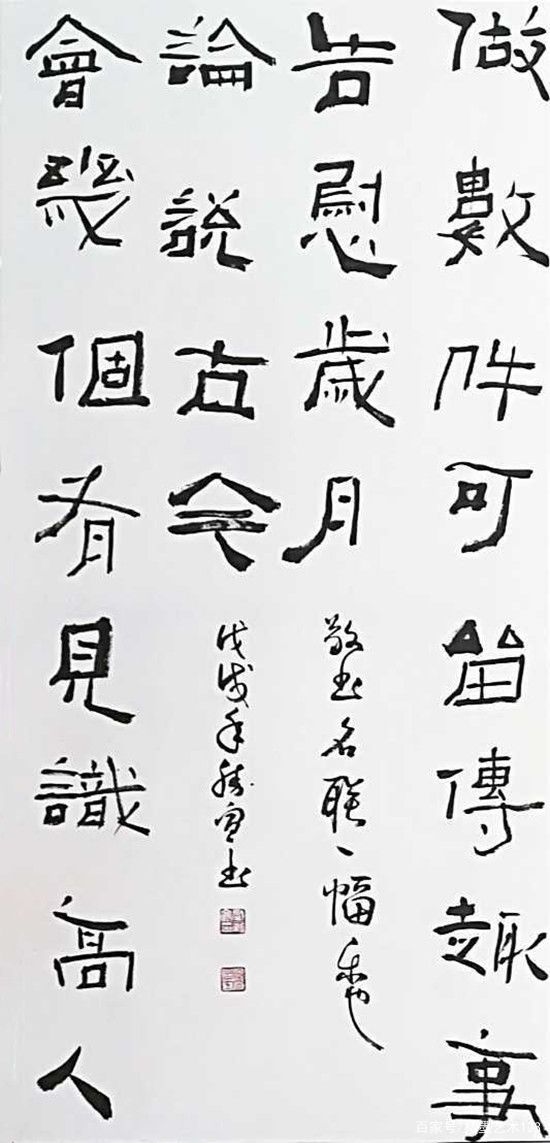 做數件可留傳趣事
告慰歲月
會幾個有見識高人
論說古今
敬书名联一幅
戊戌年书
百家号